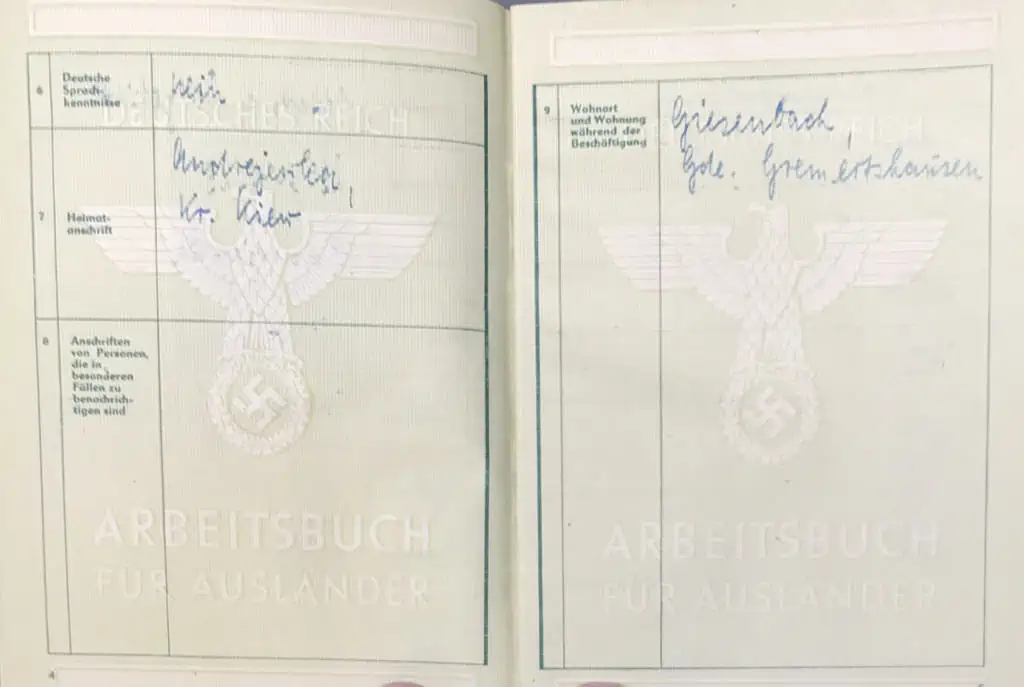 6 Deutsche
Sprach-
kenntnisse
nein
DEUTSCHES REICH
7 Heimat-
anschrift
Kr. Kiew
8 Anschriften
von Personen,
die in
besonderen
Fällen zu
benachrich-
tigen sind
ARBEITSBUCH
FÜR AUSLÄNDER
4
9 Wohnort
und Wohnung
während der
Beschäftigung
Giesenbach,
Gde. Gremertshausen
REICH
ARBEITSBUCH
FÜR AUSLÄNDER